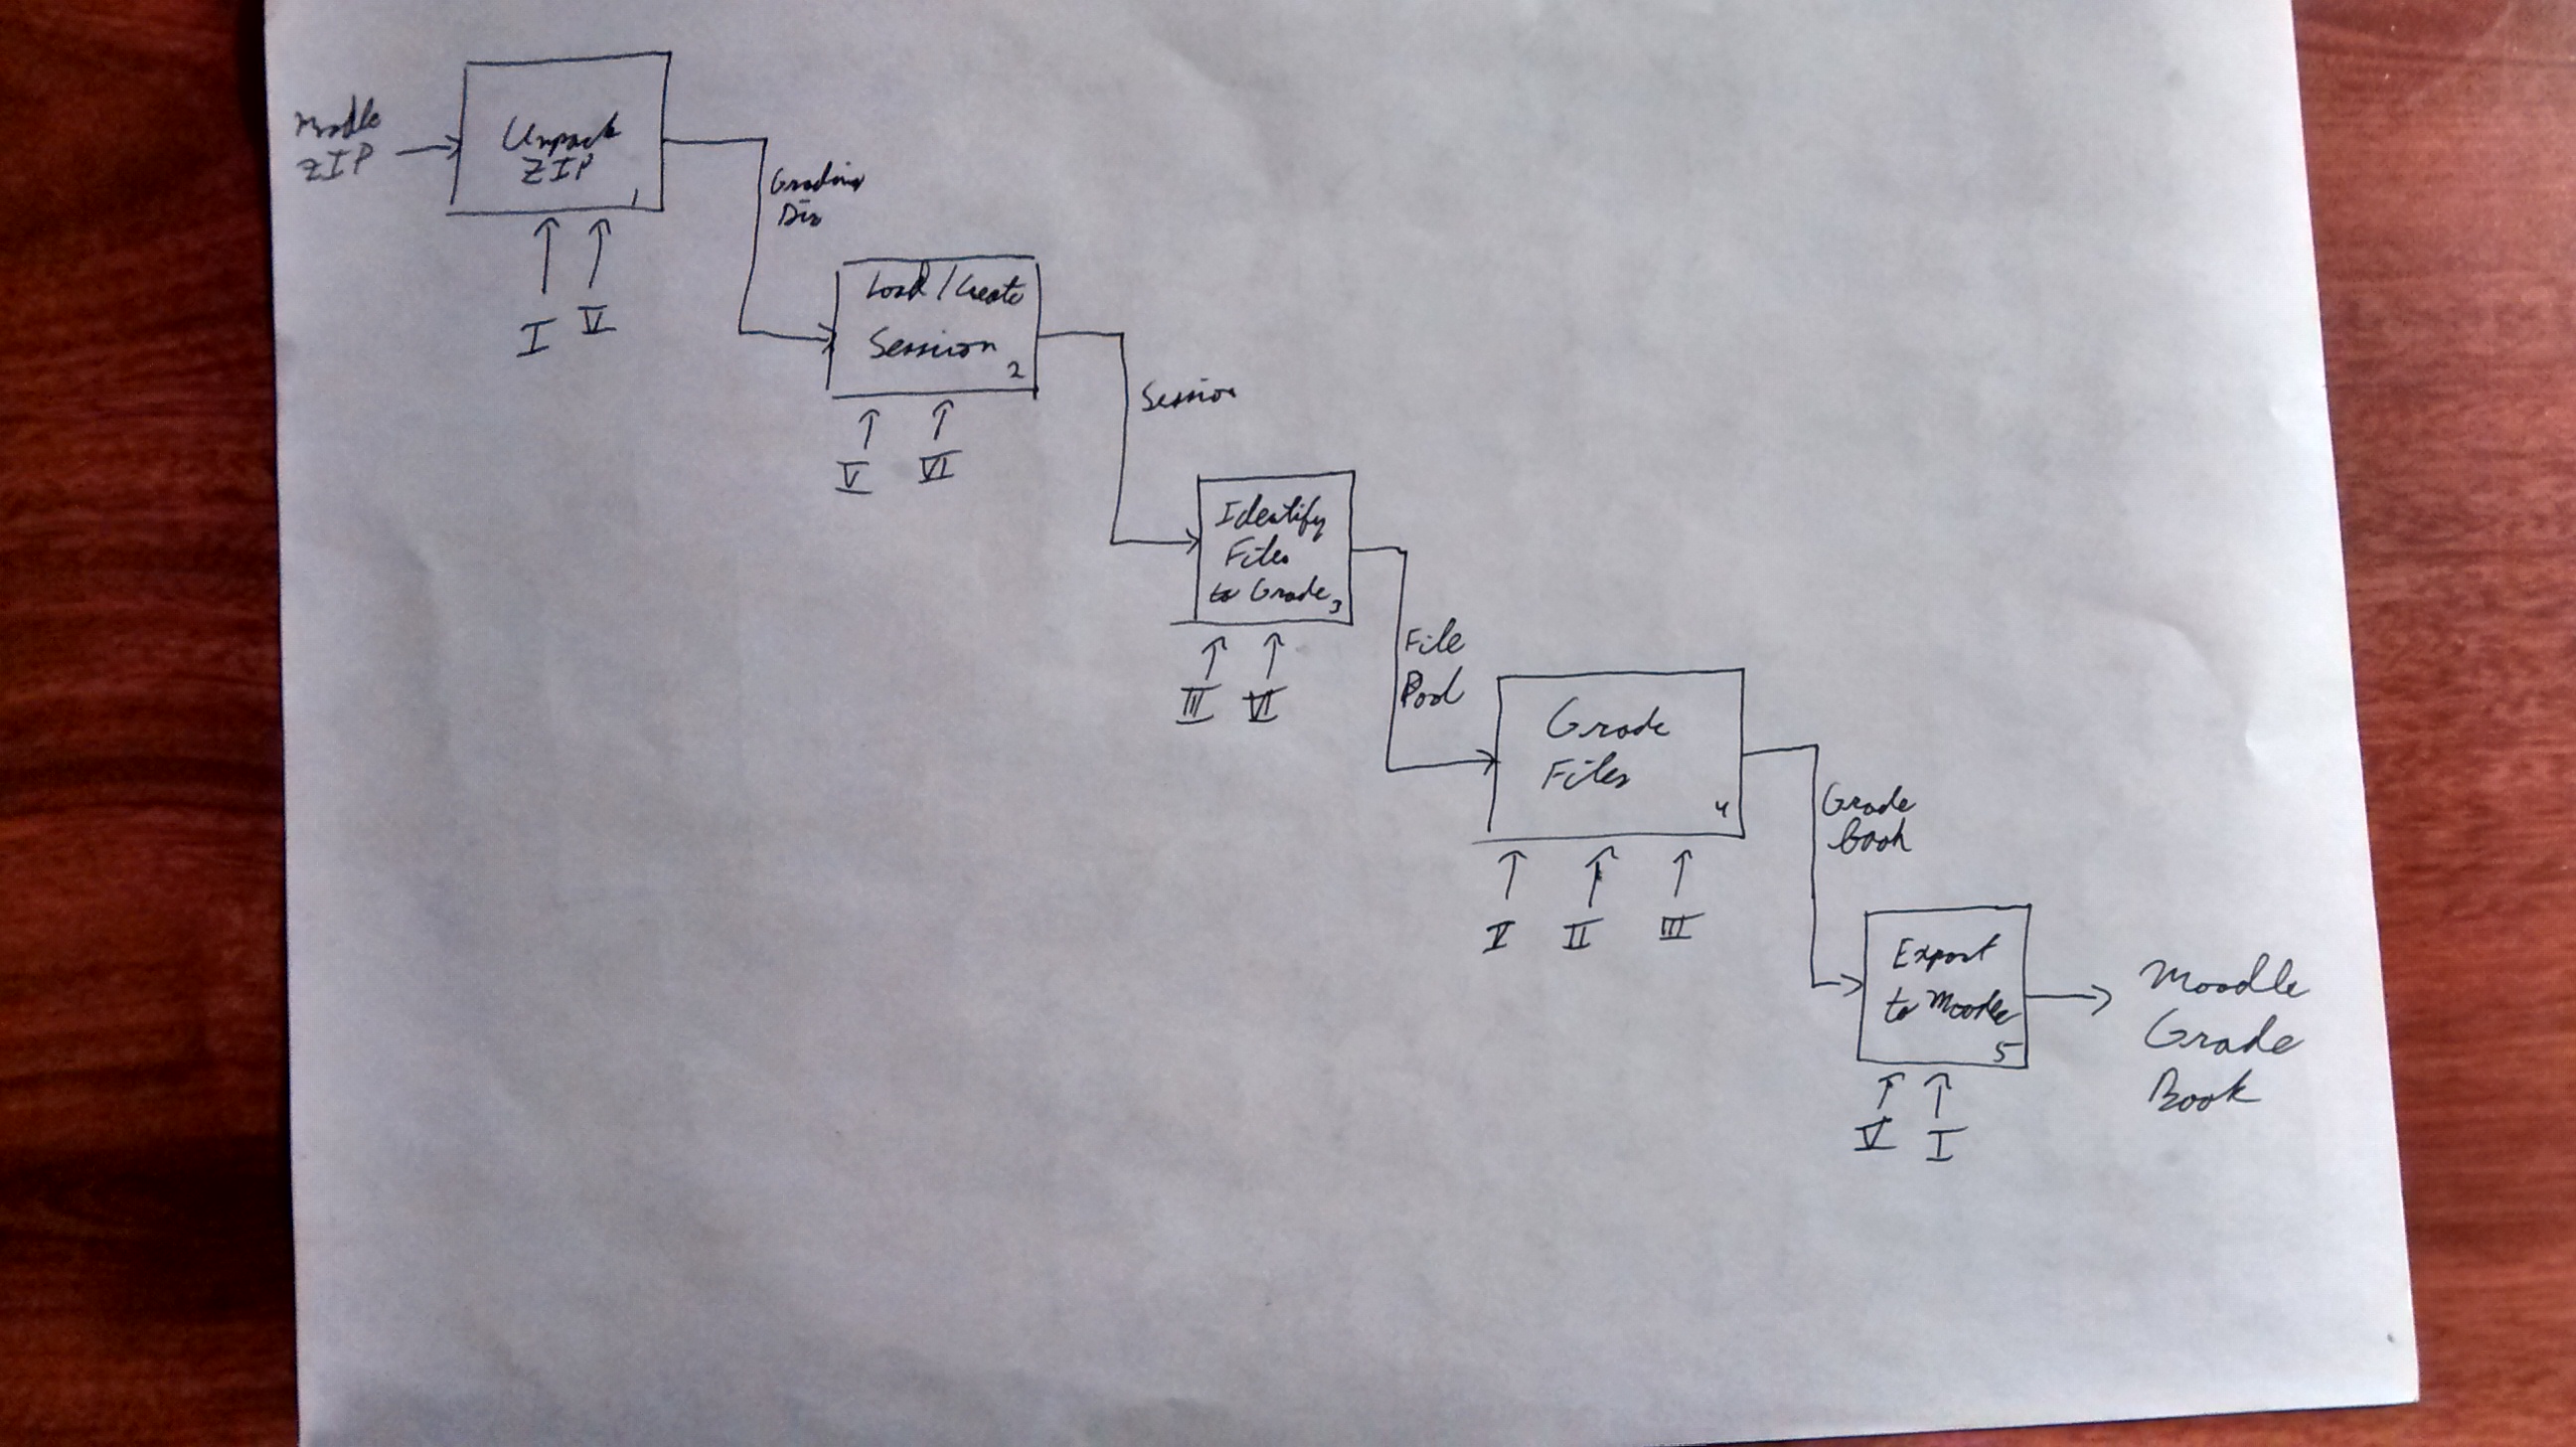 Moodle
ZIP
Unpack
ZIP
1
I V
Grading
Dir
Load/Create
Session
2
V VI
Session
Identify
Files
to Grade
3
III VI
File
Pool
Grade
Files
4
V II III
Grade
Book
Export
to Moodle
5
V I
Moodle
Grade
Book